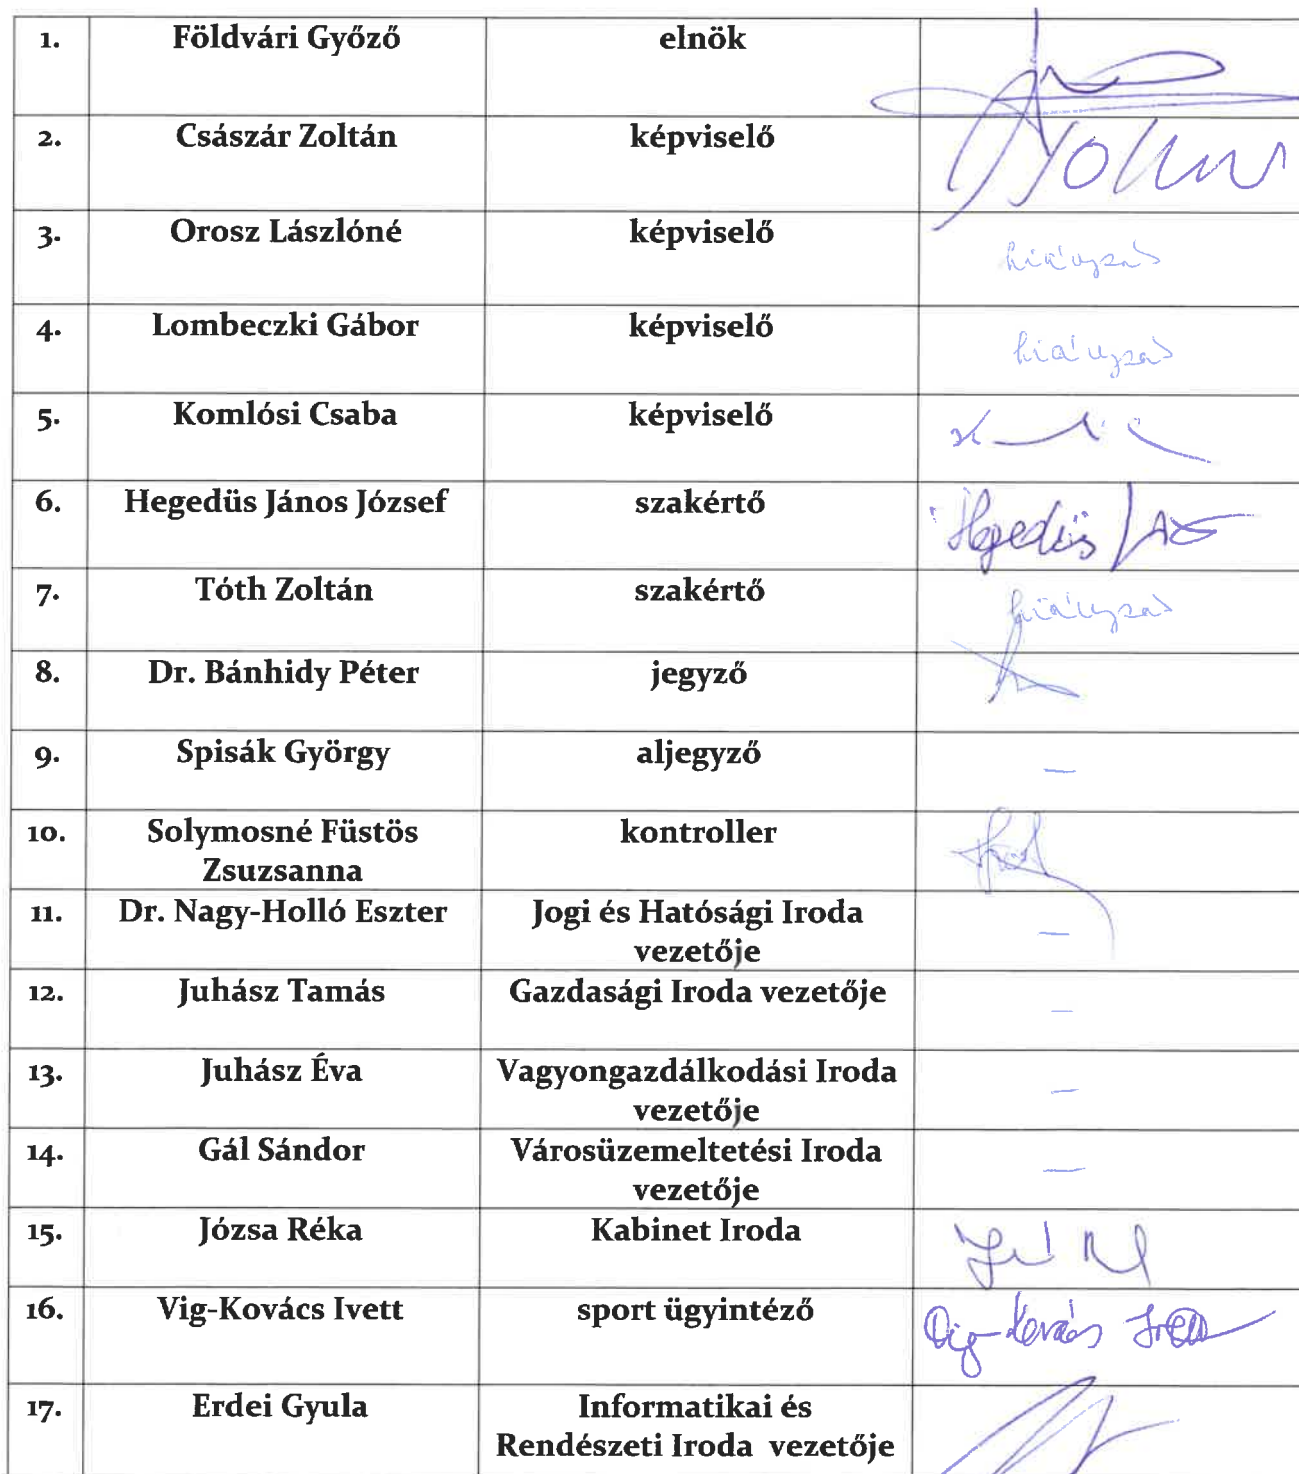 1. Földvári Győző elnök
2. Császár Zoltán képviselő
3. Orosz Lászlóné képviselő hiányzás
4. Lombeczki Gábor képviselő hiányzás
5. Komlósi Csaba képviselő
6. Hegedüs János József szakértő Hegedüs
7. Tóth Zoltán szakértő hiányzás
8. Dr. Bánhidy Péter jegyző
9. Spisák György aljegyző –
10. Solymosné Füstös kontroller
Zsuzsanna
11. Dr. Nagy-Holló Eszter Jogi és Hatósági Iroda –
vezetője
12. Juhász Tamás Gazdasági Iroda vezetője –
13. Juhász Éva Vagyongazdálkodási Iroda –
vezetője
14. Gál Sándor Városüzemeltetési Iroda –
vezetője
15. Józsa Réka Kabinet Iroda
16. Vig-Kovács Ivett sport ügyintéző Vig-Kovács Ivett
17. Erdei Gyula Informatikai és
Rendészeti Iroda vezetője